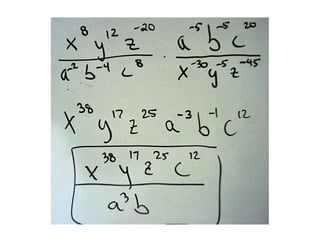 x⁸ y¹² z⁻²⁰ · a⁻⁵ b⁻⁵ c²⁰
a⁻² b⁻⁴ c⁸ x⁻³⁰ y⁻⁵ z⁻⁴⁵
x³⁸ y¹⁷ z²⁵ a⁻³ b⁻¹ c¹²
x³⁸ y¹⁷ z²⁵ c¹²
a³ b